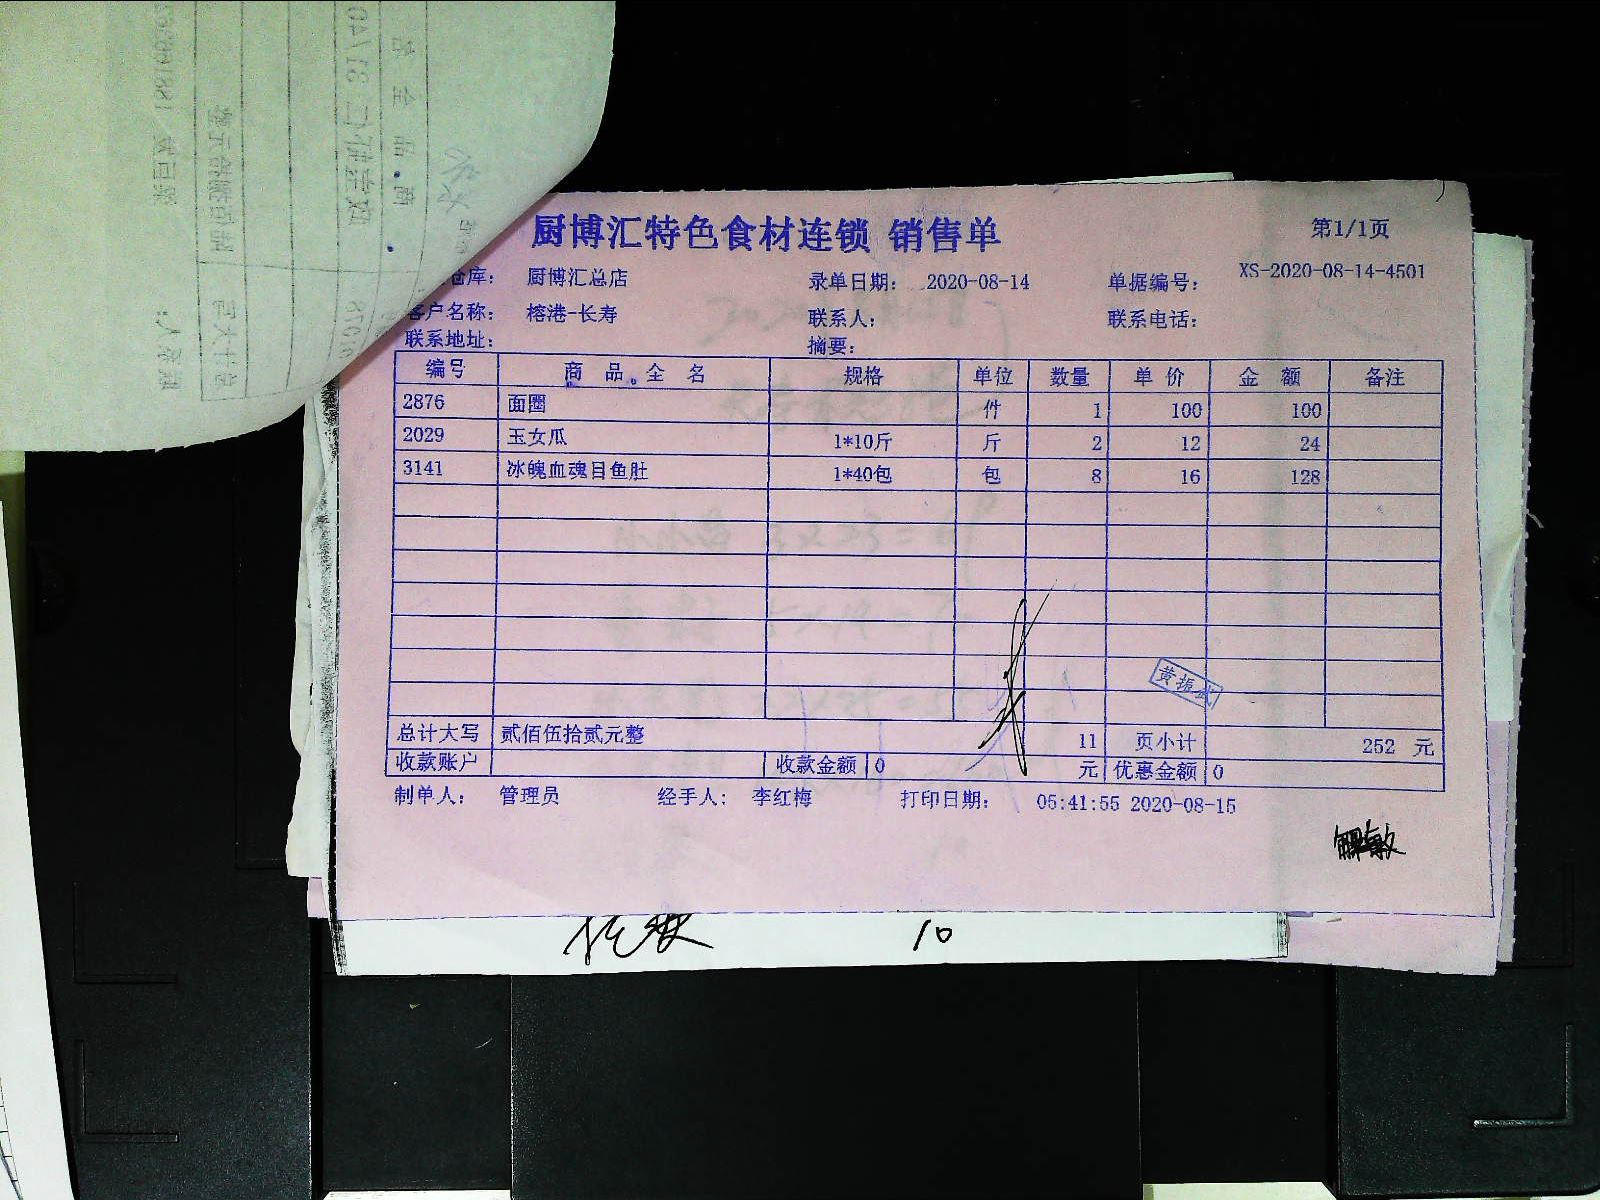 厨博汇特色食材连锁 销售单
第1/1页
仓库： 厨博汇总店 录单日期： 2020-08-14 单据编号： XS-2020-08-14-4501
客户名称： 榕港-长寿 联系人： 联系电话：
联系地址： 摘要：
编号 商品全名 规格 单位 数量 单价 金额 备注
2876 面圈 件 1 100 100
2029 玉女瓜 1*10斤 斤 2 12 24
3141 冰魄血魂目鱼肚 1*40包 包 8 16 128
黄振武
总计大写 贰佰伍拾贰元整 11 页小计 252 元
收款账户 收款金额 0 元 优惠金额 0
制单人： 管理员 经手人： 李红梅 打印日期： 05:41:55 2020-08-15
10